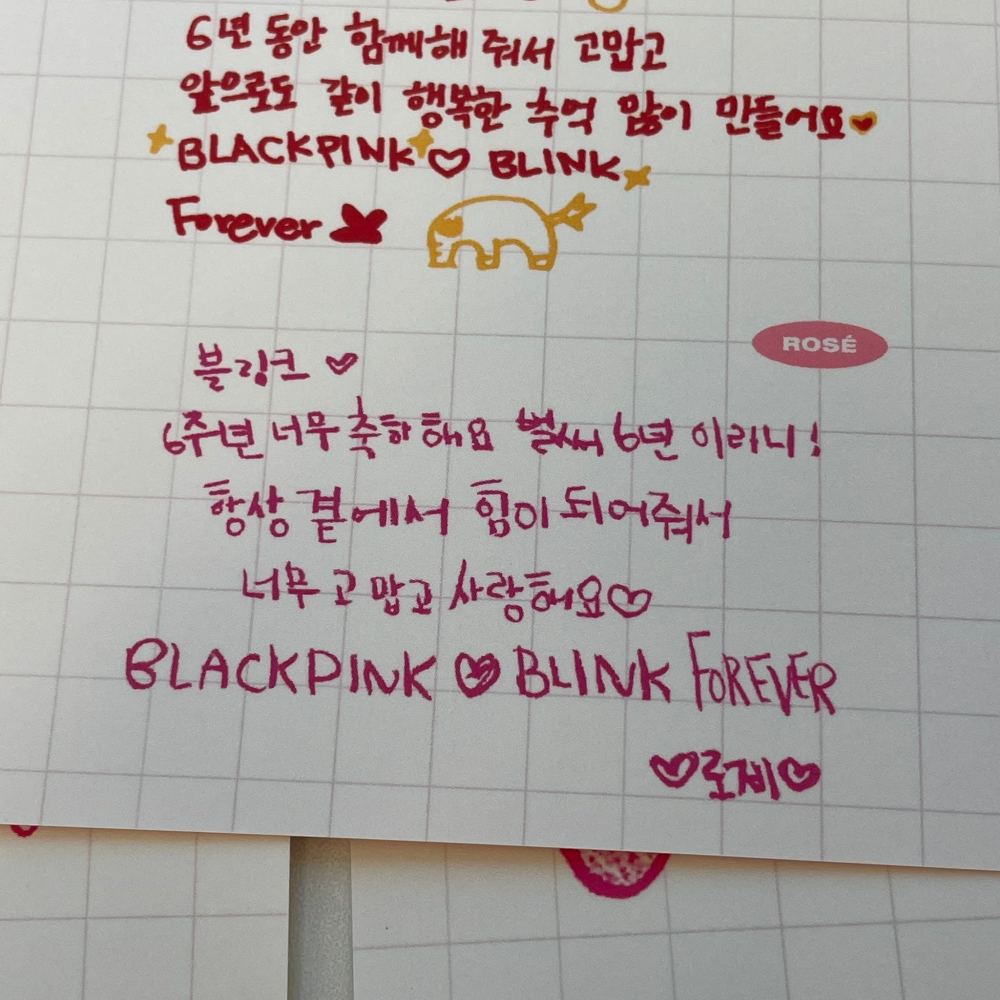 6년 동안 함께해 줘서 고맙고
앞으로도 같이 행복한 추억 많이 만들어요
BLACKPINK♡ BLINK
Forever
ROSÉ
블링크 ♡
6주년 너무 축하해요 벌써 6년 이라니!
항상 곁에서 힘이 되어줘서
너무 고맙고 사랑해요♡
BLACKPINK ♡ BLINK FOREVER
♡로제♡